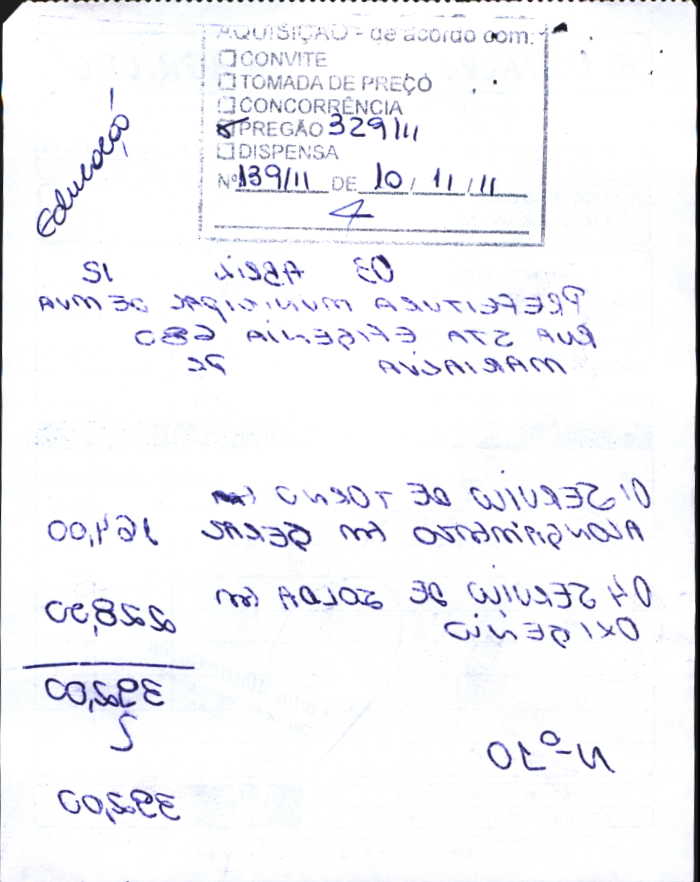 AQUISIÇÃO - de acordo com:
CONVITE
TOMADA DE PREÇO
CONCORRÊNCIA
PREGÃO 329/11
DISPENSA
Nº 139/11 DE 10 / 11 / 11
Educação
03 ABRIL 12
PREFEITURA MUNICIPAL DE MVA
RUA STA EFIGENIA 680
MARIALVA PR
01 SERVIÇO DE TORNO EM
ALONGAMENTO EM GERAL 164,00
04 SERVIÇO DE SOLDA EM
OXIGENIO 228,00
392,00
392,00